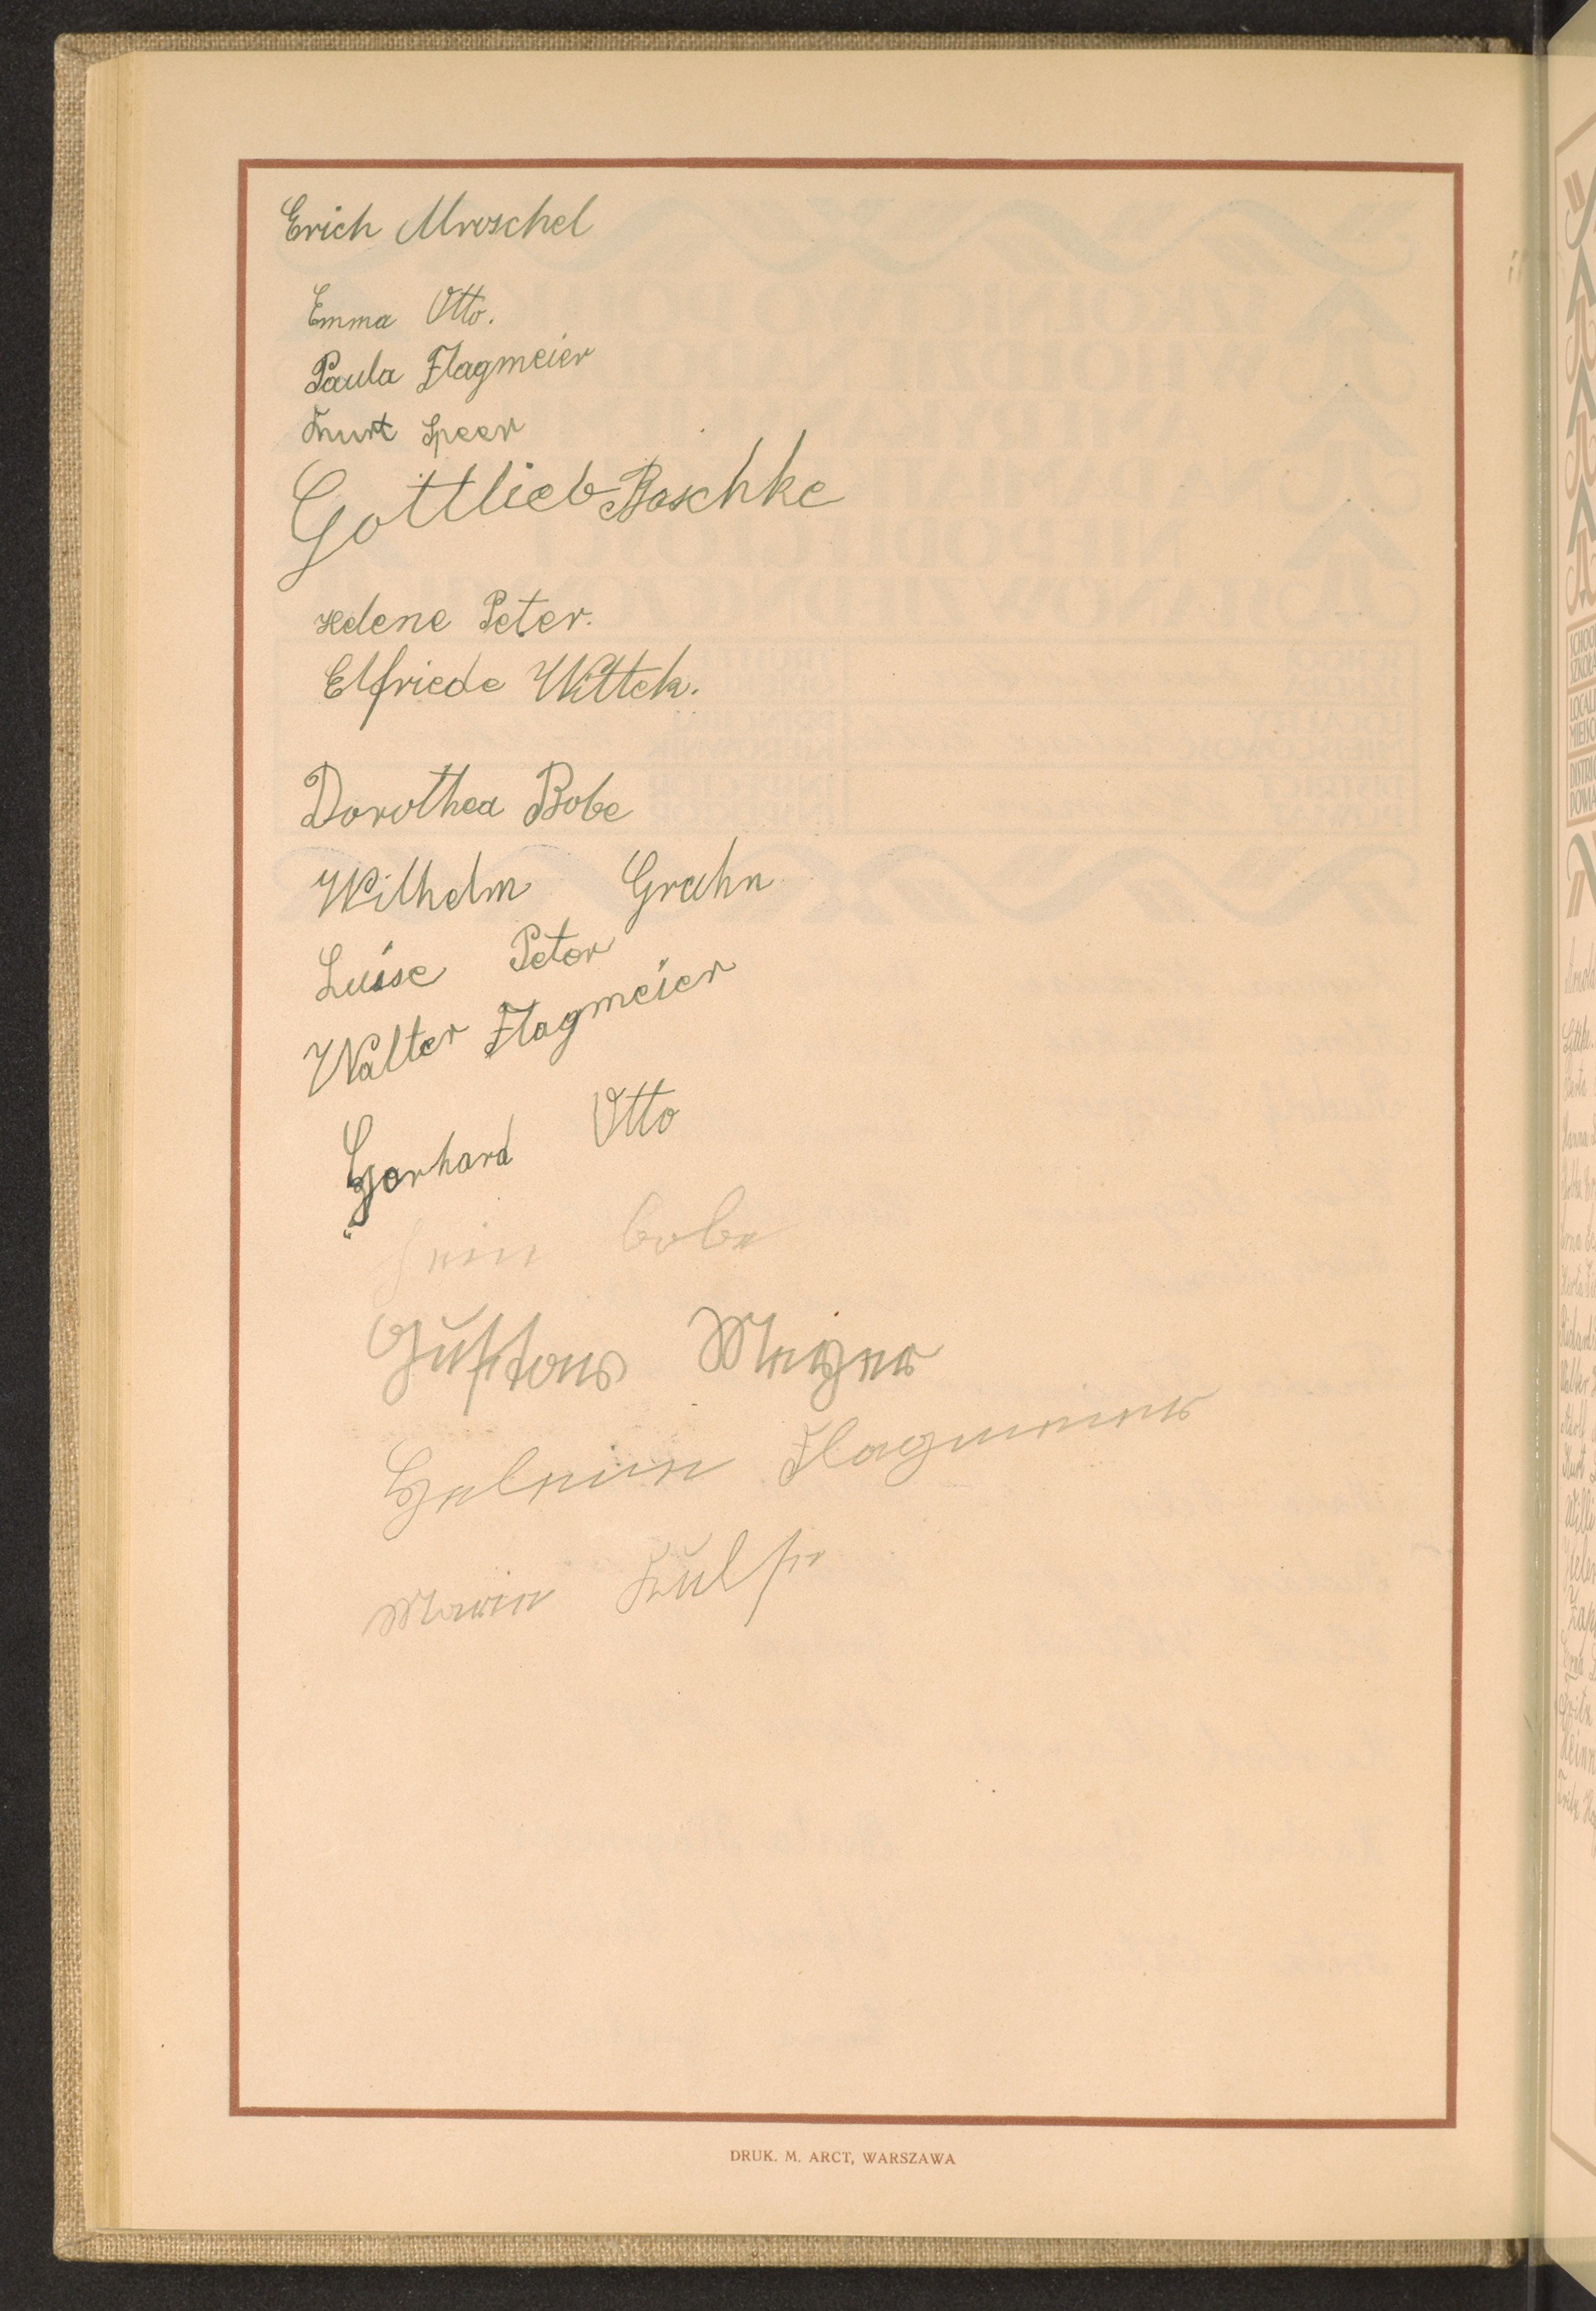 Erich Mroschel
Emma Otto.
Paula Flagmeier
Kurt Speer
Gottlieb Paschke
Helene Peter.
Elfriede Wittek.
Dorothea Bobe
Wilhelm Grahn
Luise Peter
Walter Flagmeier
Gerhard Otto
Bobe
Gustav Meyer
Helene Flagmeier
Marie
DRUK. M. ARCT, WARSZAWA